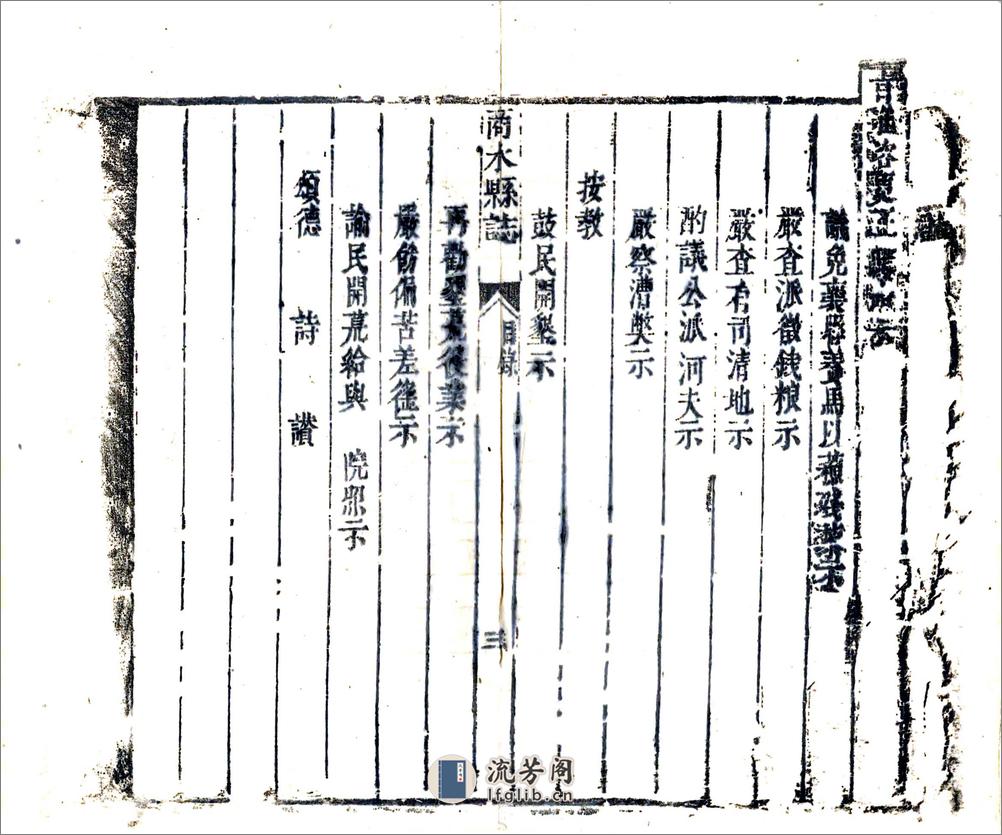 嚴查派徵錢粮示
嚴查有司清地示
酌議公派河夫示
嚴察漕獘示
按教
鼓民開墾示
商水縣誌
目錄
三
再勸墾荒後業示
嚴飭偏苦差徭示
諭民開荒給與 院照示
頌德 詩 讃
流芳阁
lfglib.cn